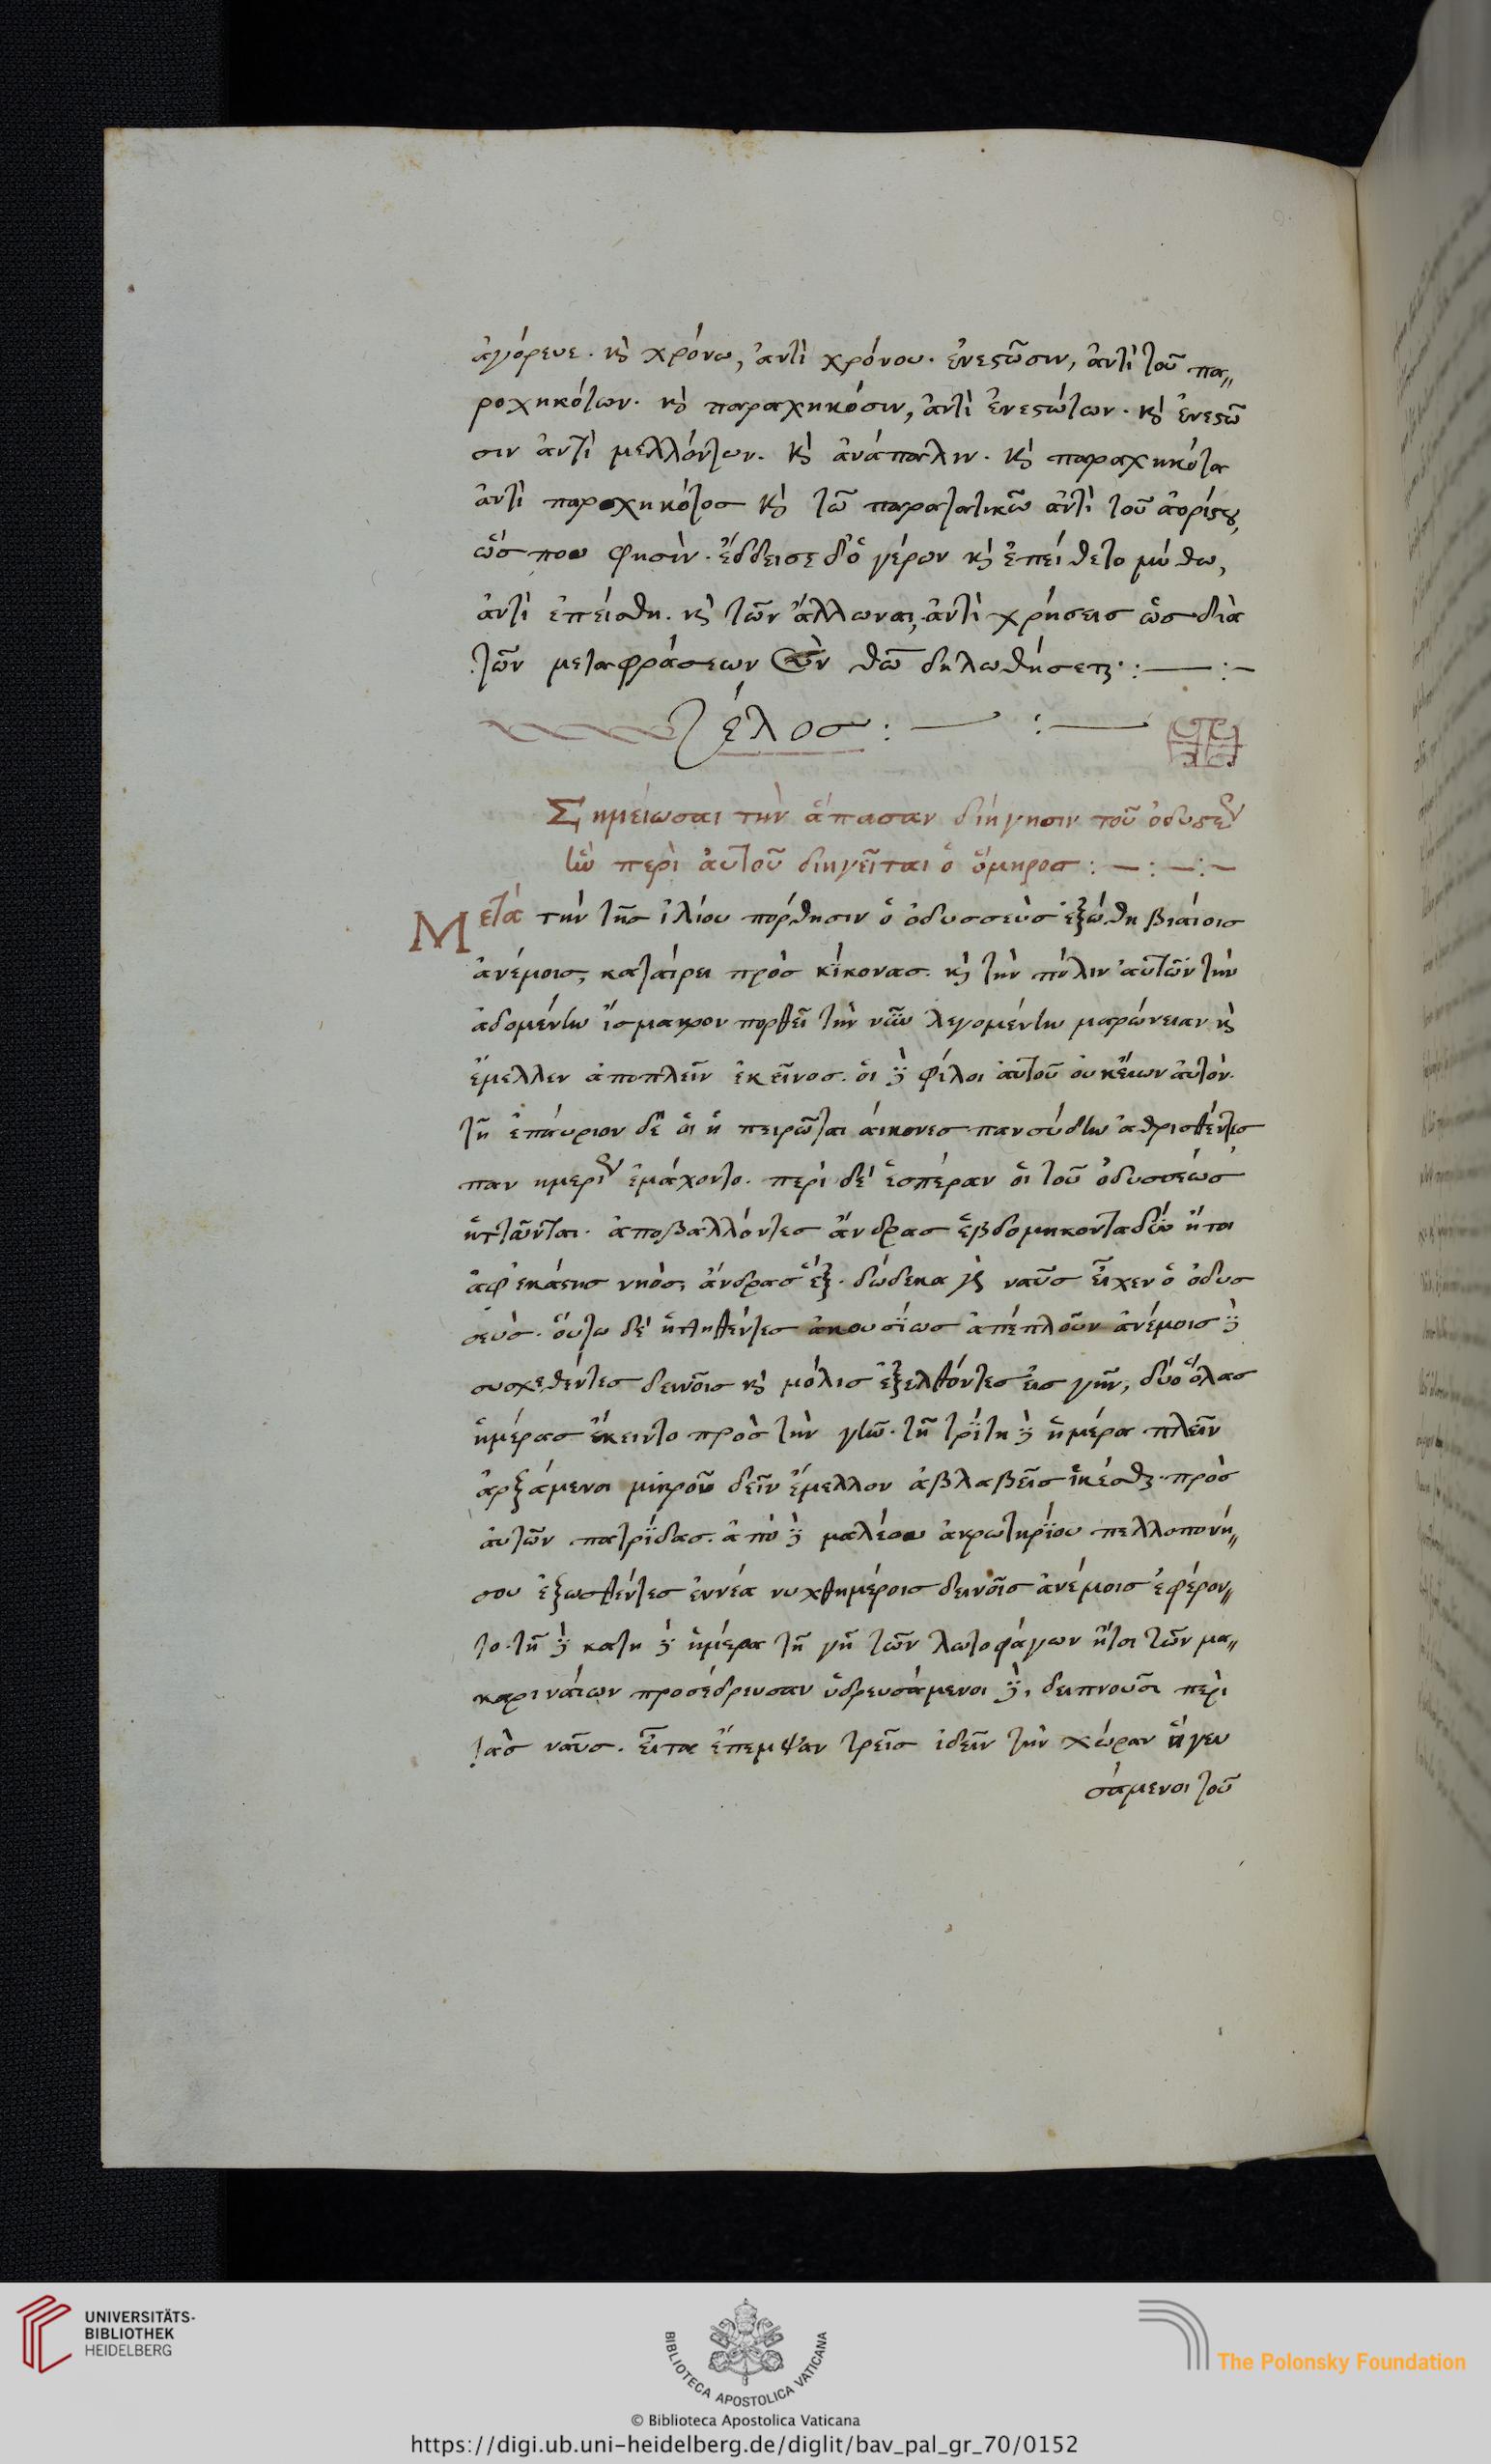 ἀγόρευε. καὶ χρόνω, ἀντὶ χρόνου. ἐνεστῶσιν, ἀντὶ τοῦ πα
ροχηκότων. καὶ παραχηκόσιν, ἀντὶ ἐνεστώτων. καὶ ἐνεστῶ
σιν ἀντὶ μελλόντων. καὶ ἀνάπαλιν. καὶ παραχηκότα
ἀντὶ παροχηκότος καὶ τῶ παρατατικῶ ἀντὶ τοῦ ἀορίστου,
ὥς που φησὶν. ἔδδεισε δ' ὁ γέρων καὶ ἐπείθετο μύθω,
ἀντὶ ἐπείσθη. καὶ τῶν ἄλλων αἱ ἀντὶ χρήσεις ὡς διὰ
τῶν μεταφράσεων σὺν θῶ δηλωθήσεται :
τέλος :
Σημείωσαι τὴν ἅπασαν διήγησιν τοῦ ὀδυσσέως
ἣν περὶ αὐτοῦ διηγεῖται ὁ ὅμηρος :
Μετὰ τὴν τῆς ἰλίου πόρθησιν ὁ ὀδυσσεὺς ἐξώθη βιαίοις
ἀνέμοις, καταίρει πρὸς κίκονας. καὶ τὴν πόλιν αὐτῶν τὴν
ἀδομένην ἴσμαρον πορθεῖ τὴν νῦν λεγομένην μαρώνειαν καὶ
ἔμελλεν ἀποπλεῖν ἐκεῖνος. οἱ δὲ φίλοι αὐτοῦ οὐκ εἴων αὐτόν.
τῆ ἐπαύριον δὲ οἱ ἠπειρῶται κίκονες πανσύδην ἀθρισθέντες
παν ημεριον ἐμάχοντο. περὶ δὲ ἑσπέραν οἱ τοῦ ὀδυσσέως
ἡττῶνται. ἀποβαλλόντες ἄνδρας ἑβδομηκονταδύω ἤτοι
ἀφ' ἑκάστης νηὸς, ἄνδρας ἕξ. δώδεκα γὰρ ναῦς εἶχεν ὁ ὀδυσ
σεὺς. οὕτω δὲ ἡττηθέντες ἀκουσίως ἀπέπλουν ἀνέμοις δὲ
συσχεθέντες δεινοῖς καὶ μόλις ἐξελθόντες εἰς γῆν, δύο ὅλας
ἡμέρας ἔκειντο πρὸς τὴν γῆν. τῆ τρίτη δὲ ἡμέρα πλεῖν
ἀρξάμενοι μικροῦ δεῖν ἔμελλον ἀβλαβεῖς ἱκέσθαι πρὸς
αὐτῶν πατρίδας. ἀπὸ δὲ μαλέου ἀκρωτηρίου πελλοπονή
σου ἐξωσθέντες ἐννέα νυχθημέροις δεινοῖς ἀνέμοις ἐφέρον
το. τῆ δὲ κάτη δὲ ἡμέρα τῆ γῆ τῶν λωτοφάγων ἤτοι τῶν μα
καριναίων προσέδρευσαν ὑδρευσάμενοι δὲ, δειπνοῦσι περὶ
τὰς ναῦς. εἶτα ἔπεμψαν τρεῖς ἰδεῖν τὴν χώραν ἣ γευ
σάμενοι τοῦ
UNIVERSITÄTS-
BIBLIOTHEK
HEIDELBERG
BIBLIOTECA APOSTOLICA VATICANA
The Polonsky Foundation
© Biblioteca Apostolica Vaticana
https://digi.ub.uni-heidelberg.de/diglit/bav_pal_gr_70/0152